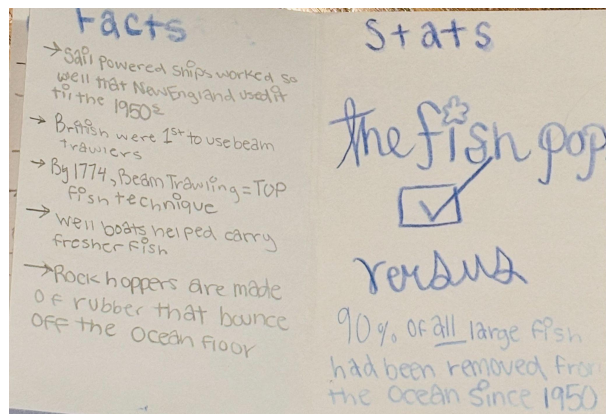 Facts
→ Sail powered ships worked so
well that New England used it
til the 1950s
→ British were 1st to use beam
trawlers
→ By 1774, Beam Trawling = TOP
fish technique
→ well boats helped carry
fresher fish
→ Rock hoppers are made
of rubber that bounce
off the ocean floor
Stats
the fish pop
versus
90% of all large fish
had been removed from
the ocean since 1950